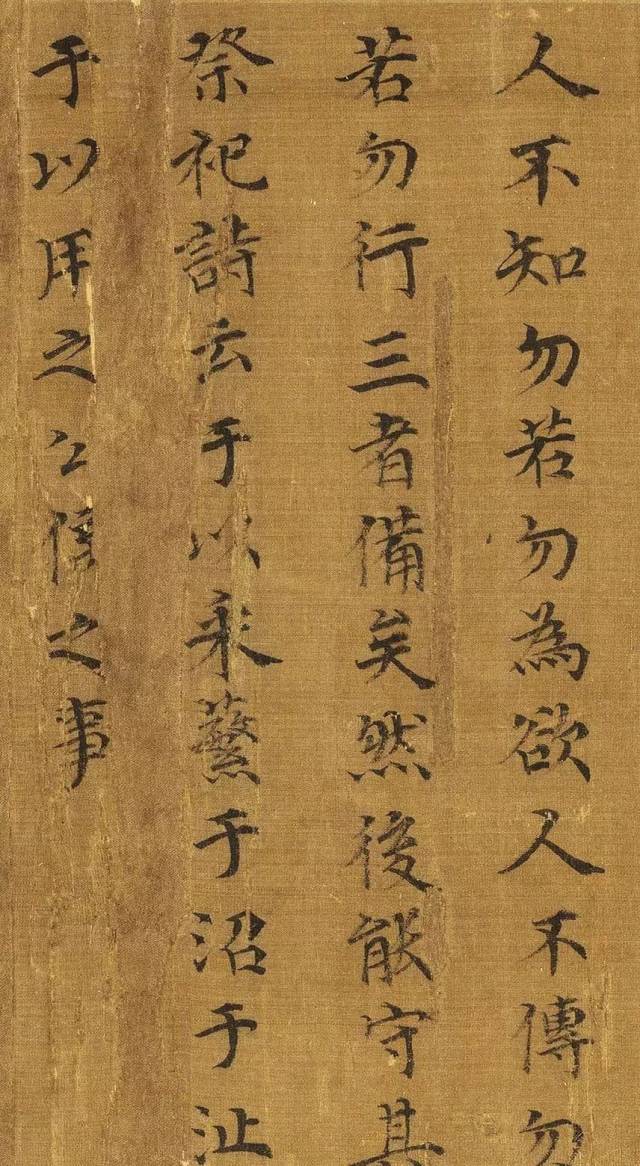 人不知勿若勿為欲人不傳勿
若勿行三者備矣然後能守其
祭祀詩云于以采蘩于沼于沚
于以用之公侯之事